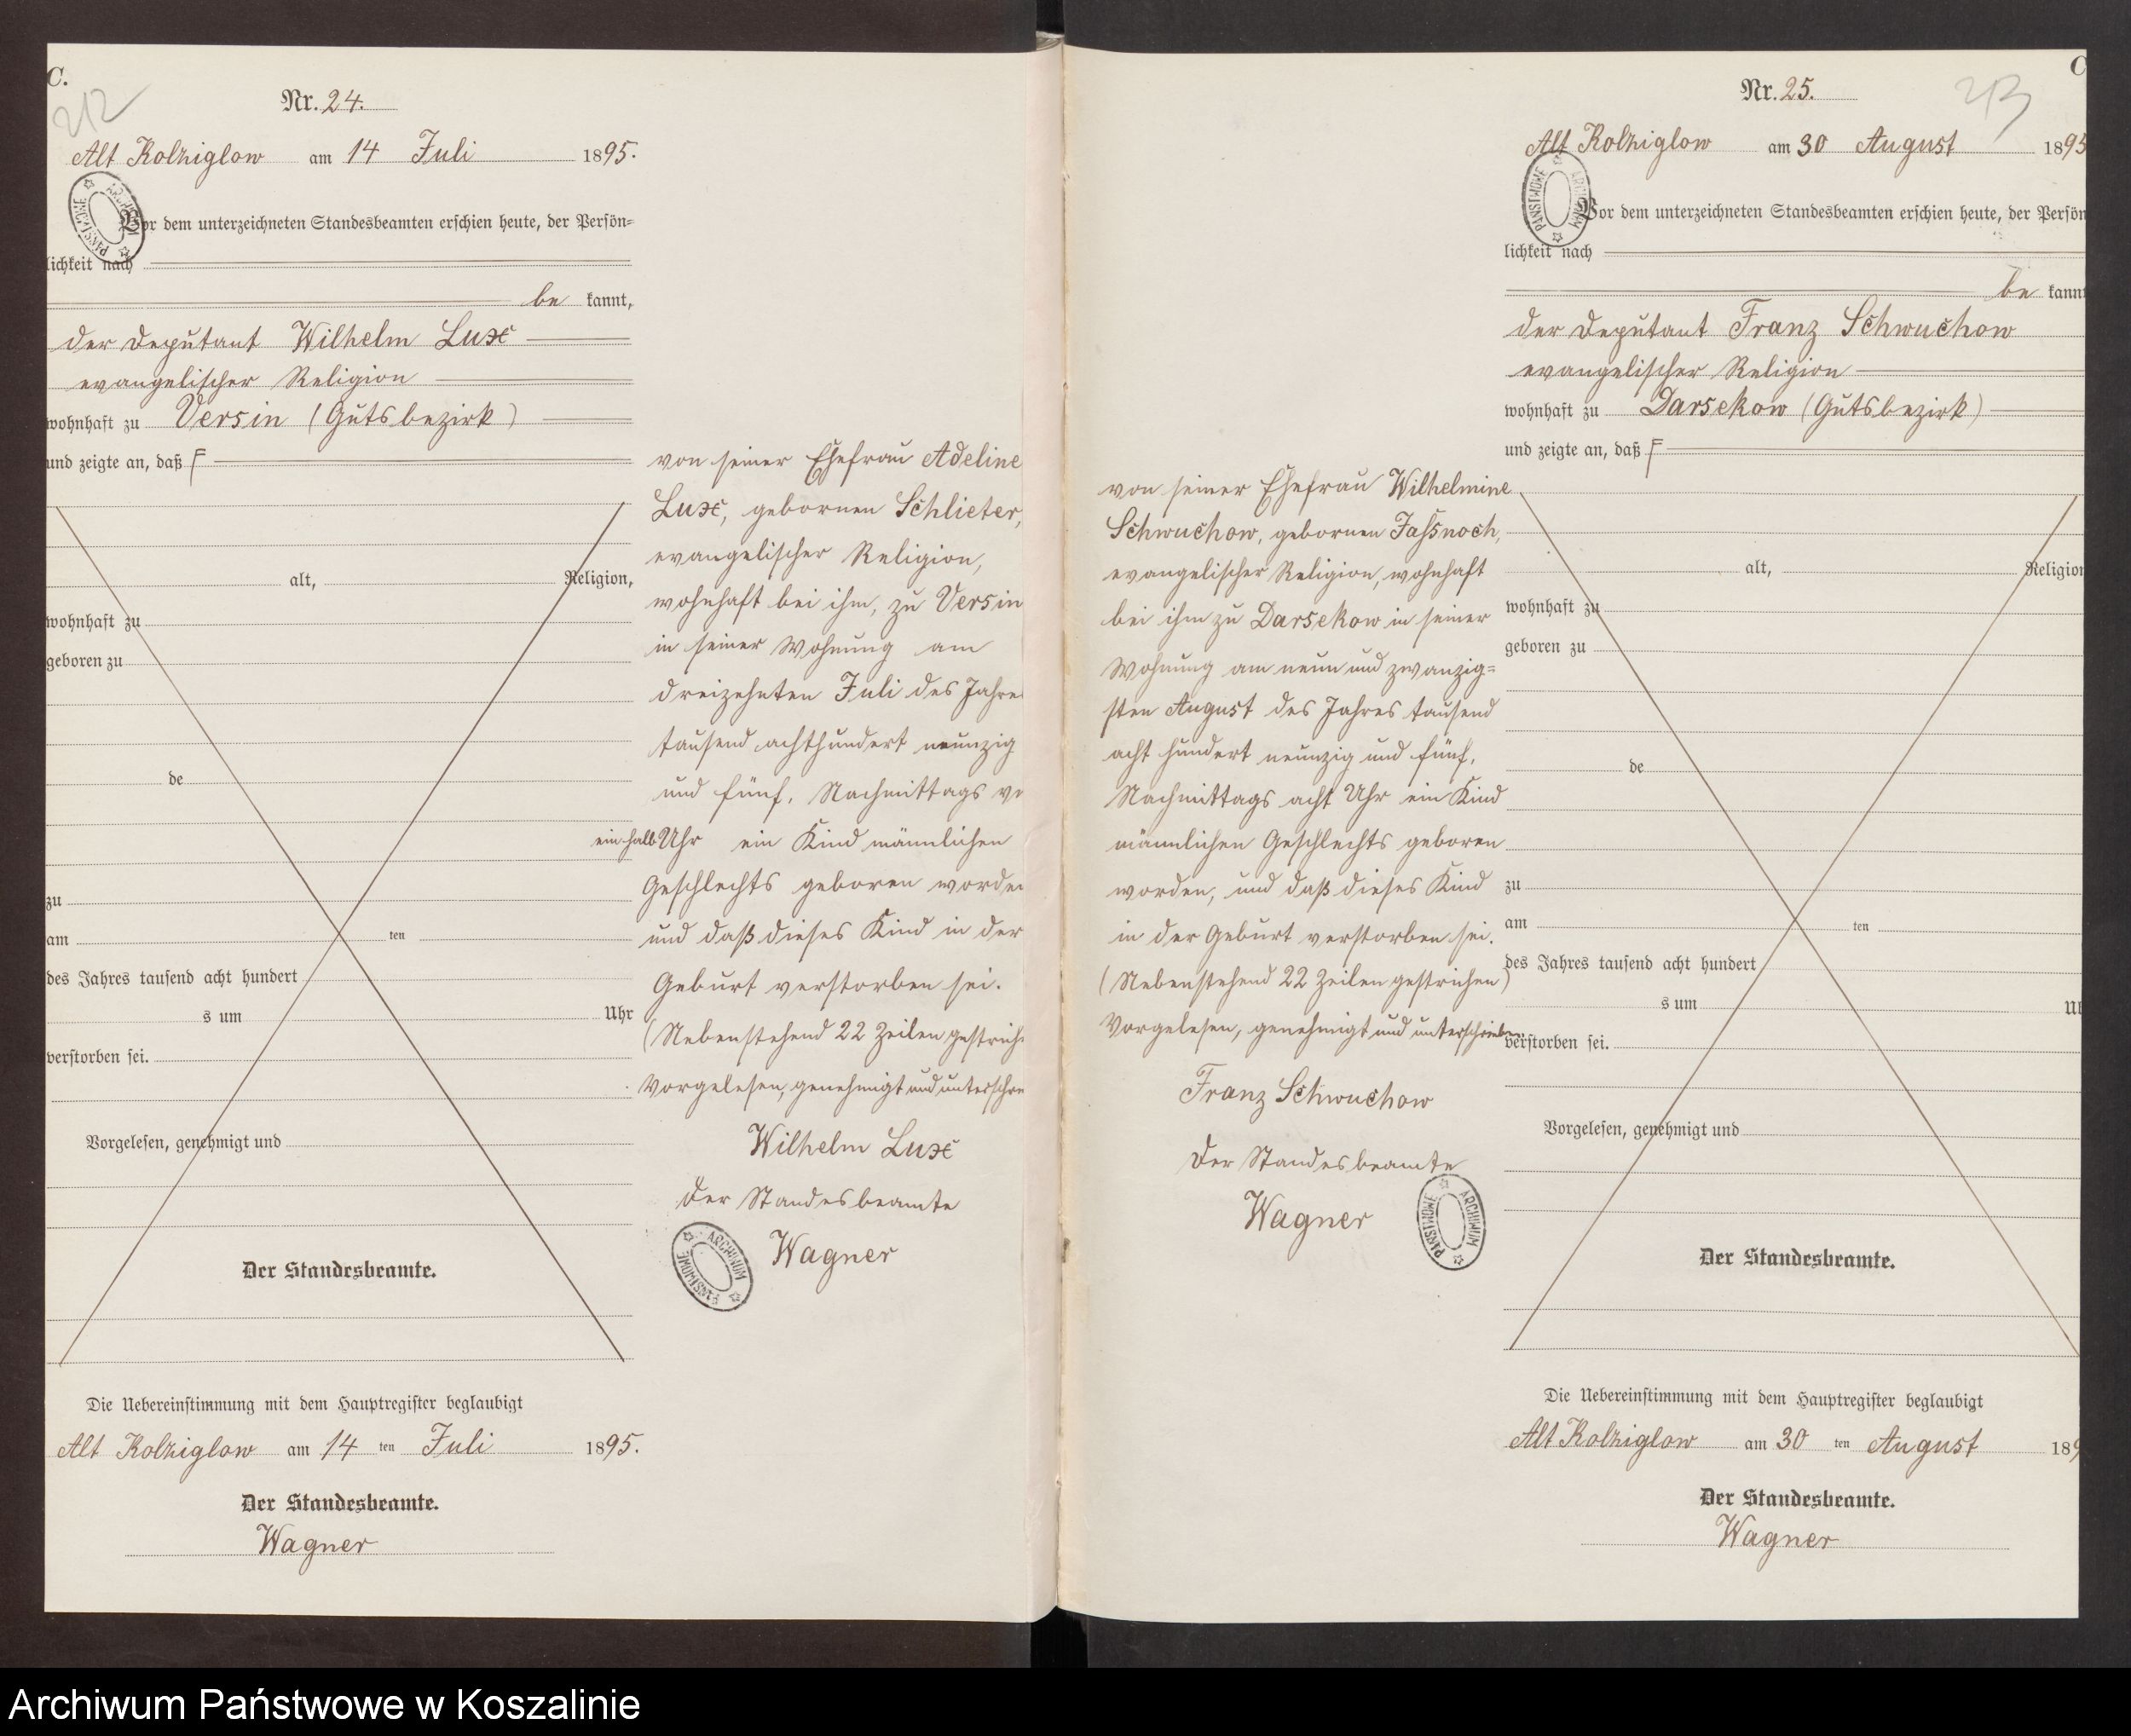 C.
212
Nr. 24.
Alt Kolziglow am 14 Juli 1895.
Vor dem unterzeichneten Standesbeamten erschien heute, der Persön=
lichkeit nach
be kannt,
der Deputant Wilhelm Lux
evangelischer Religion
wohnhaft zu Versin (Gutsbezirk)
und zeigte an, daß
von seiner Ehefrau Adeline
Lux, gebornen Schlieter,
evangelischer Religion,
wohnhaft bei ihm, zu Versin
in seiner Wohnung am
dreizehnten Juli des Jahre
tausend achthundert neunzig
und fünf, Nachmittags
ein halb Uhr ein Kind männlichen
Geschlechts geboren worden
und daß dieses Kind in der
Geburt verstorben sei.
(Nebenstehend 22 Zeilen gestrich
Vorgelesen, genehmigt und unterschrie
Wilhelm Lux
Der Standesbeamte
Wagner
ARCHIWUM PAŃSTWOWE
alt, Religion,
wohnhaft zu
geboren zu
de
zu
am ten
des Jahres tausend acht hundert
s um Uhr
verstorben sei.
Vorgelesen, genehmigt und
Der Standesbeamte.
Die Uebereinstimmung mit dem Hauptregister beglaubigt
Alt Kolziglow am 14 ten Juli 1895.
Der Standesbeamte.
Wagner
C
213
Nr. 25.
Alt Kolziglow am 30 August 1895
ARCHIWUM PAŃSTWOWE
Vor dem unterzeichneten Standesbeamten erschien heute, der Persön
lichkeit nach
be kannt
der Deputant Franz Schwuchow
evangelischer Religion
wohnhaft zu Darsekow (Gutsbezirk)
und zeigte an, daß
von seiner Ehefrau Wilhelmine
Schwuchow, gebornen Jassnoch,
evangelischer Religion, wohnhaft
bei ihm zu Darsekow in seiner
Wohnung am neun und zwanzig=
sten August des Jahres tausend
acht hundert neunzig und fünf,
Nachmittags acht Uhr ein Kind
männlichen Geschlechts geboren
worden, und daß dieses Kind
in der Geburt verstorben sei.
(Nebenstehend 22 Zeilen gestrichen)
Vorgelesen, genehmigt und unterschrieben
Franz Schwuchow
Der Standesbeamte
Wagner
ARCHIWUM PAŃSTWOWE
alt, Religion
wohnhaft zu
geboren zu
de
zu
am ten
des Jahres tausend acht hundert
s um Uh
verstorben sei.
Vorgelesen, genehmigt und
Der Standesbeamte.
Die Uebereinstimmung mit dem Hauptregister beglaubigt
Alt Kolziglow am 30 ten August 189
Der Standesbeamte.
Wagner
Archiwum Państwowe w Koszalinie